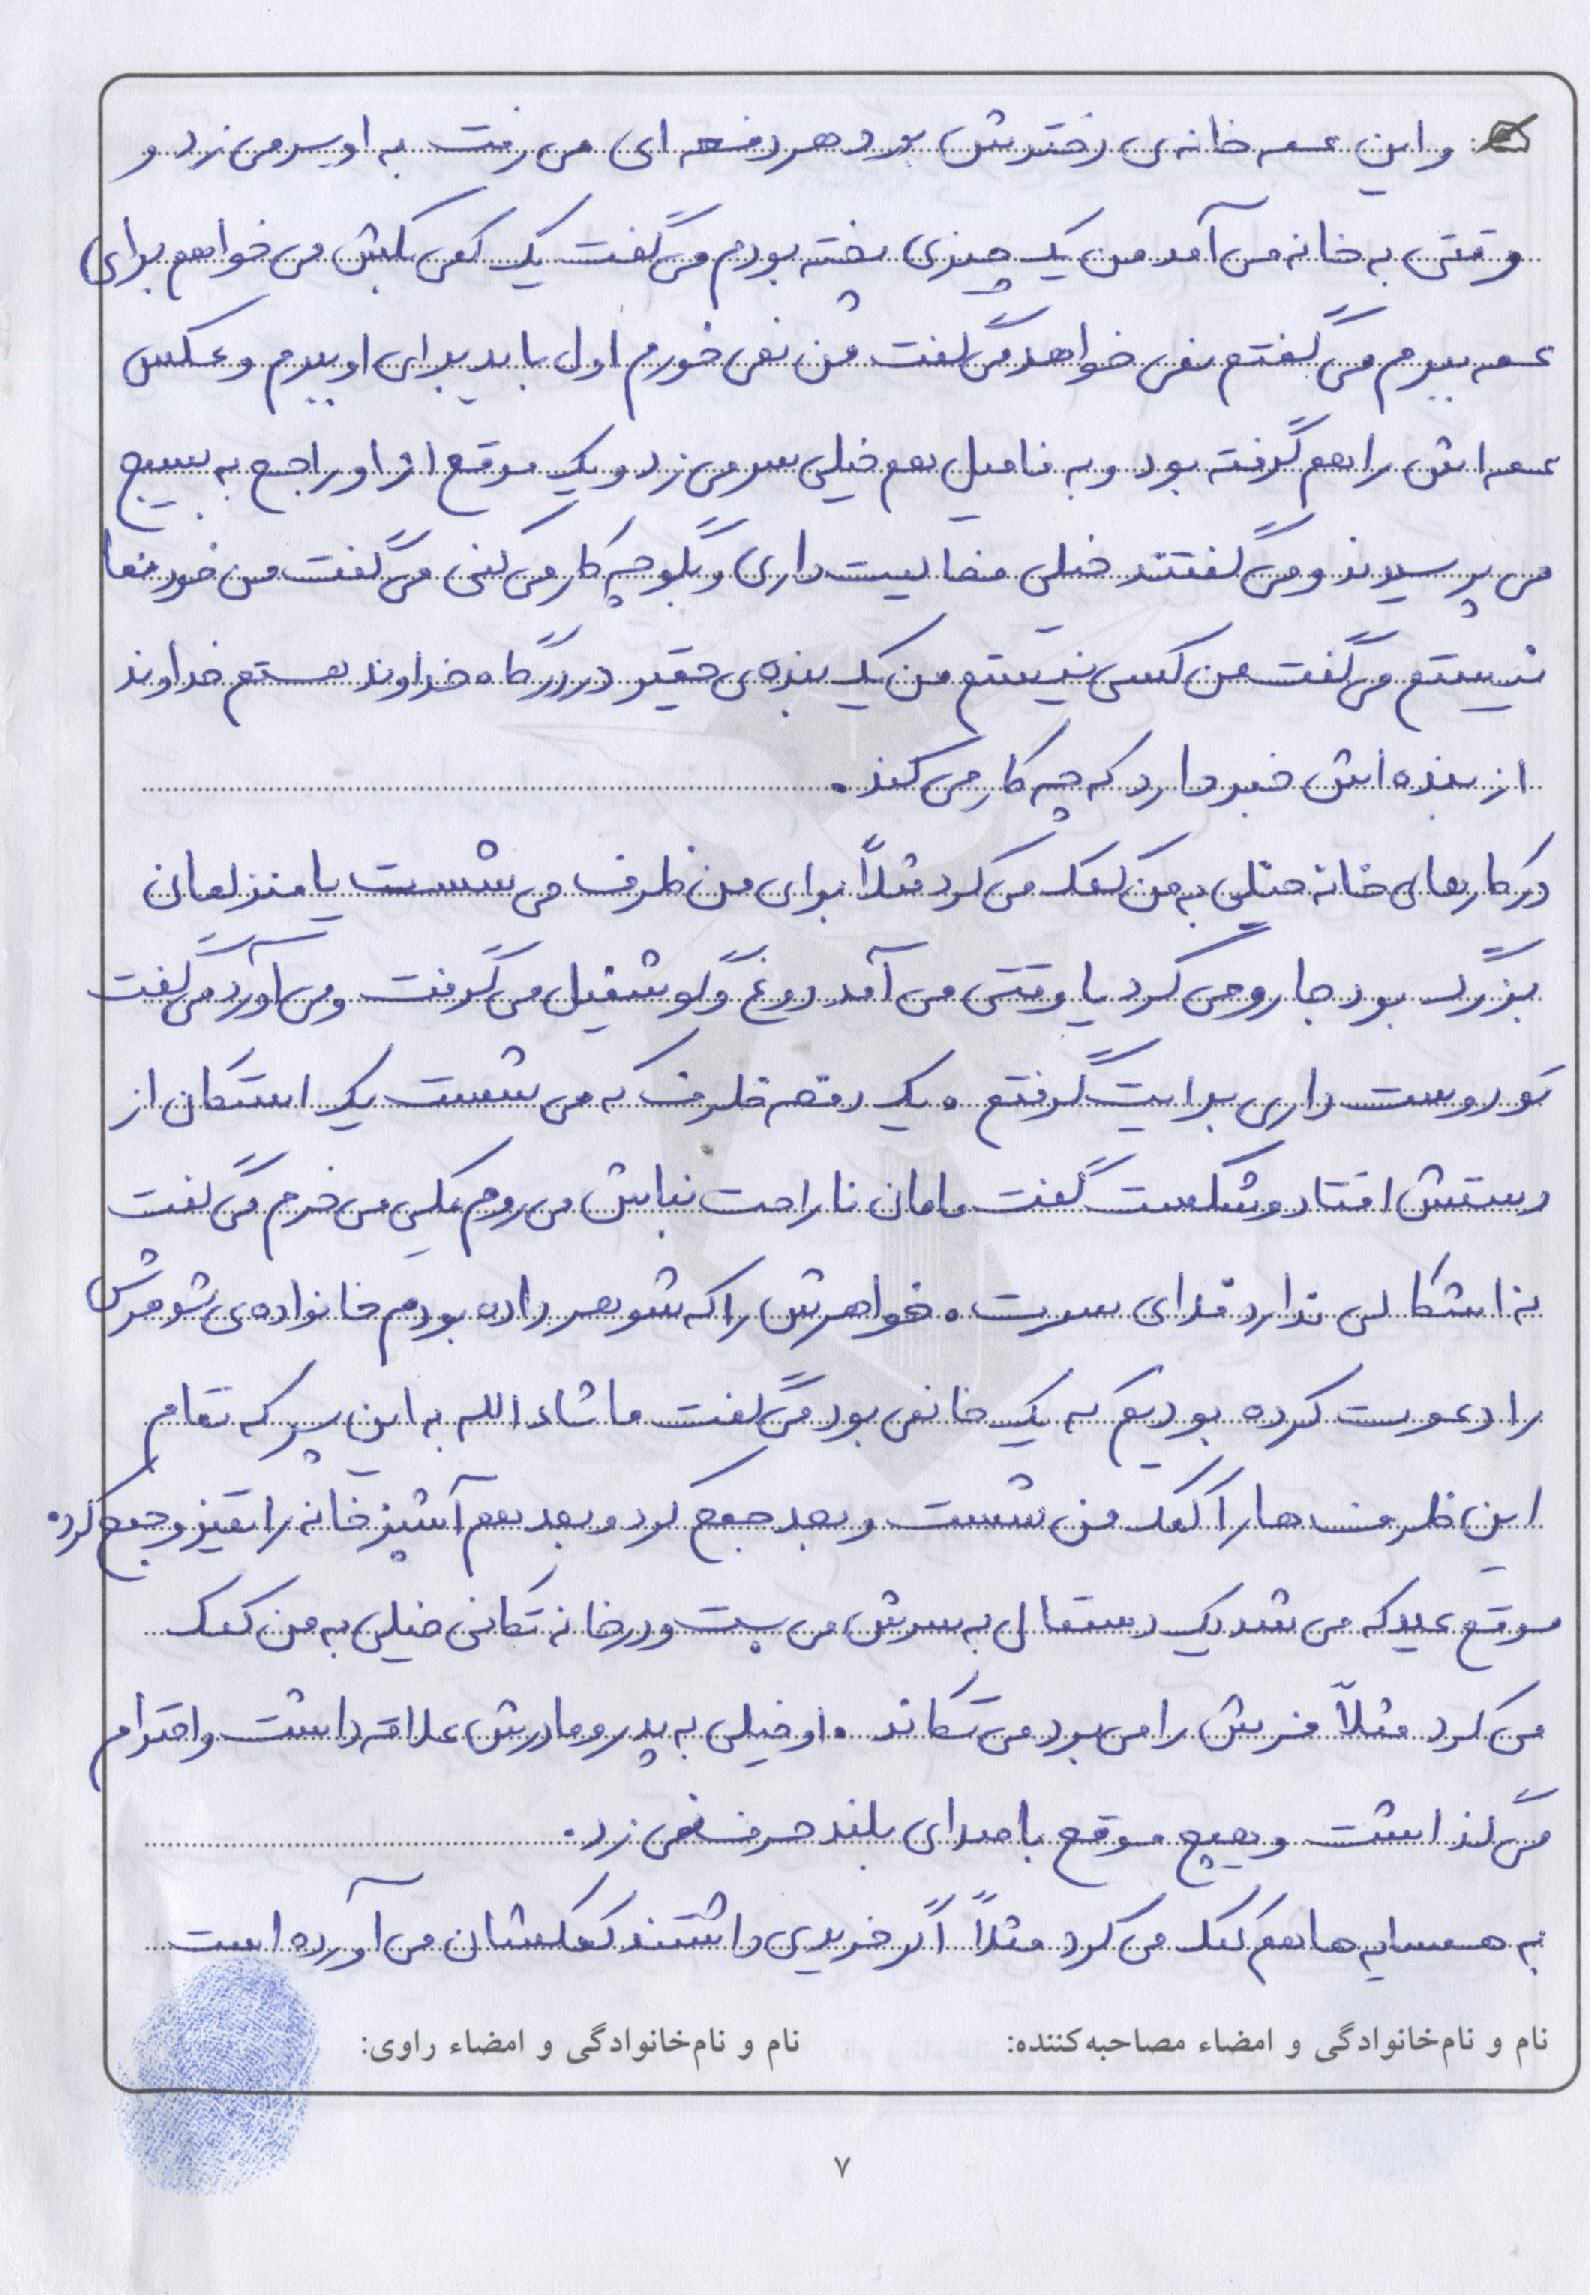 و این عمه خانه‌ی دخترش بود هر دفعه ای می رفت به او سر می زد و
وقتی به خانه می آمد من یک چیزی پخته بودم می گفت یک کمی بکش می خواهم برای
عمه ببرم می گفتم نمی خواهد می گفت من نمی خورم اول باید برای او ببرم و عکس
عمه اش را هم گرفته بود و به فامیل هم خیلی سر می زد و یک موقع از او راجع به بسیج
می پرسیدند و می گفتند خیلی فعالیت داری و بگو چه کار می کنی می گفت من خودنما
نیستم می گفت من کسی نیستم من یک بنده‌ی حقیر در درگاه خداوند هستم خداوند
از بنده اش خبر دارد که چه کار می کند.
در کارهای خانه خیلی به من کمک می کرد مثلاً برای من ظرف می شست یا منزلمان
بزرگ بود جارو می کرد یا وقتی می آمد دوغ و گوشفیل می گرفت و می آورد می گفت
تو دوست داری برایت گرفتم. یک دفعه ظرف که می شست یک استکان از
دستش افتاد و شکست گفت مامان ناراحت نباش می روم یکی می خرم می گفت
نه اشکالی ندارد فدای سرت. خواهرش را که شوهر داده بودم خانواده‌ی شوهرش
را دعوت کرده بودیم که یک خانمی بود می گفت ماشاء الله به این پسر که تمام
این ظرف ها را کمک من شست و بعد جمع کرد و بعد هم آشپزخانه را تمیز و جمع کرد.
موقع عید که می شد یک دستمال به سرش می بست و در خانه تکانی خیلی به من کمک
می کرد مثلاً فرش را می برد می تکاند. او خیلی به پدر و مادرش علاقه داشت و احترام
می گذاشت و هیچ موقع با صدای بلند حرف نمی زد.
به همسایه ها هم کمک می کرد مثلاً اگر خریدی داشتند کمکشان می آورده است
نام و نام‌خانوادگی و امضاء مصاحبه‌کننده: نام و نام‌خانوادگی و امضاء راوی:
۷